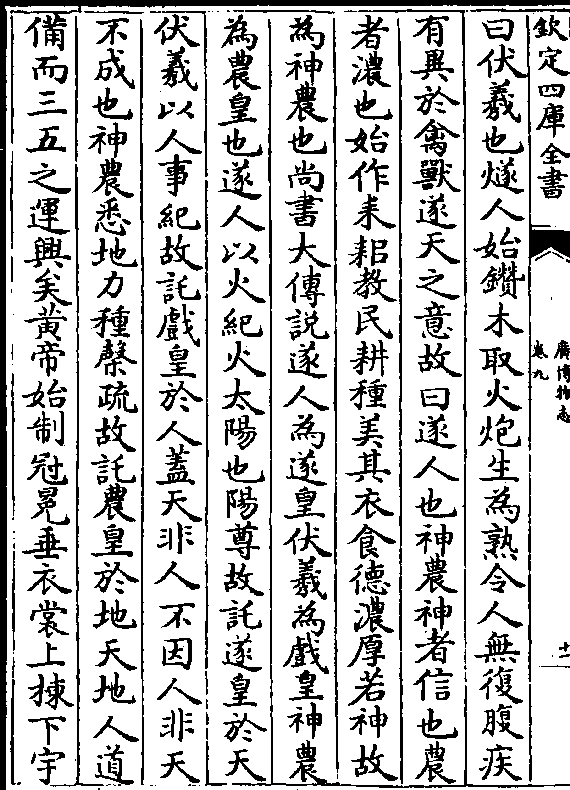 欽定四庫全書
廣博物志
卷九
十一
曰伏羲也燧人始鑽木取火炮生為熟令人無復腹疾
有異於禽獸遂天之意故曰遂人也神農神者信也農
者濃也始作耒耜教民耕種美其衣食德濃厚若神故
為神農也尚書大傳說遂人為遂皇伏羲為戲皇神農
為農皇也遂人以火紀火太陽也陽尊故託遂皇於天
伏羲以人事紀故託戲皇於人蓋天非人不因人非天
不成也神農悉地力種糓疏故託農皇於地天地人道
備而三五之運興矣黃帝始制冠冕垂衣裳上棟下宇